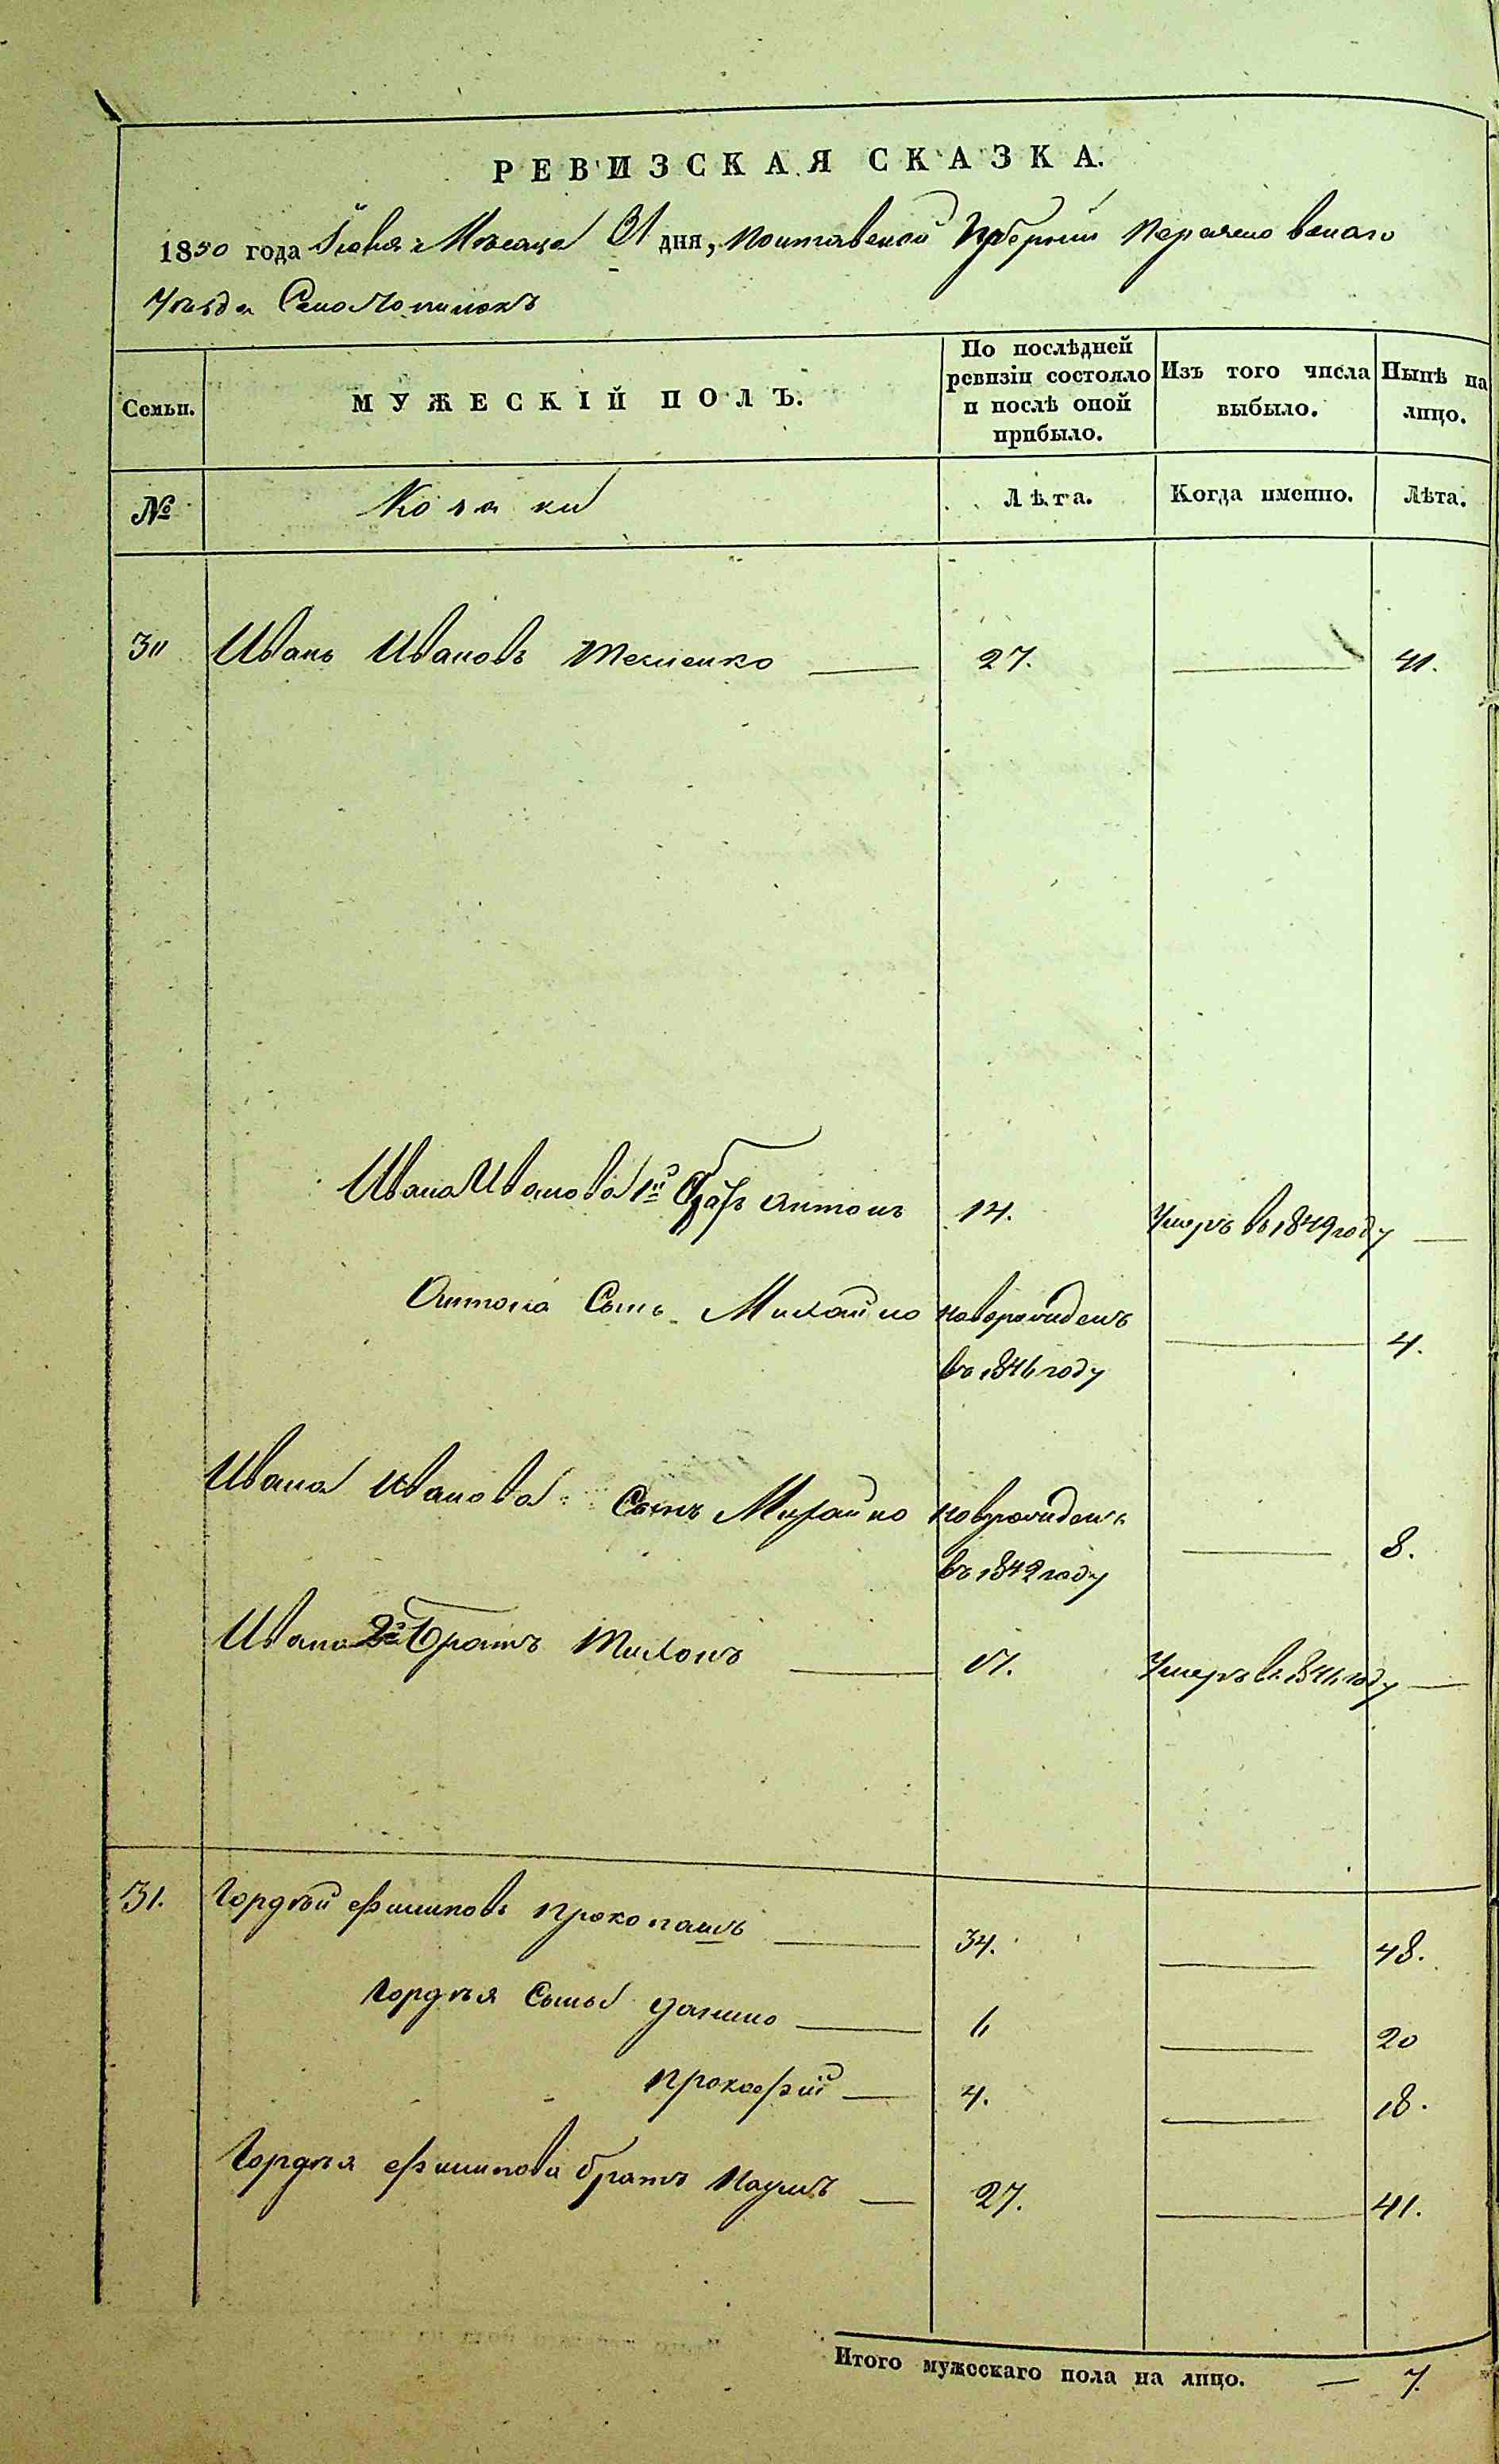 РЕВИЗСКАЯ СКАЗКА.
1850 года Месяца дня, Полтавской Губернии
Уезда Село
Семьи.
МУЖЕСКІЙ ПОЛЪ.
По послѣдней ревизіи состояло и послѣ оной прибыло.
Изъ того числа выбыло.
Нынѣ на лицо.
№
Козаки
Лѣта.
Когда именно.
Лѣта.
30 Иванъ Ивановъ 27. 41.
Ивана Иванова 1й братъ Антонъ 14. Умеръ въ 1849 году
Антона Сынъ Михайло новорожденъ 4.
въ 1846 году
Ивана Иванова Сынъ Михайло новорожденъ 8.
въ 1842 году
Ивана 2й братъ Тихонъ Умеръ въ году
31. Гордѣй Филиповъ 34. 48.
Гордѣя Сыны Данило 6 20
Прокофій 4. 18.
Гордѣя Филипова братъ Наумъ 27. 41.
Итого мужескаго пола на лицо. — 7.